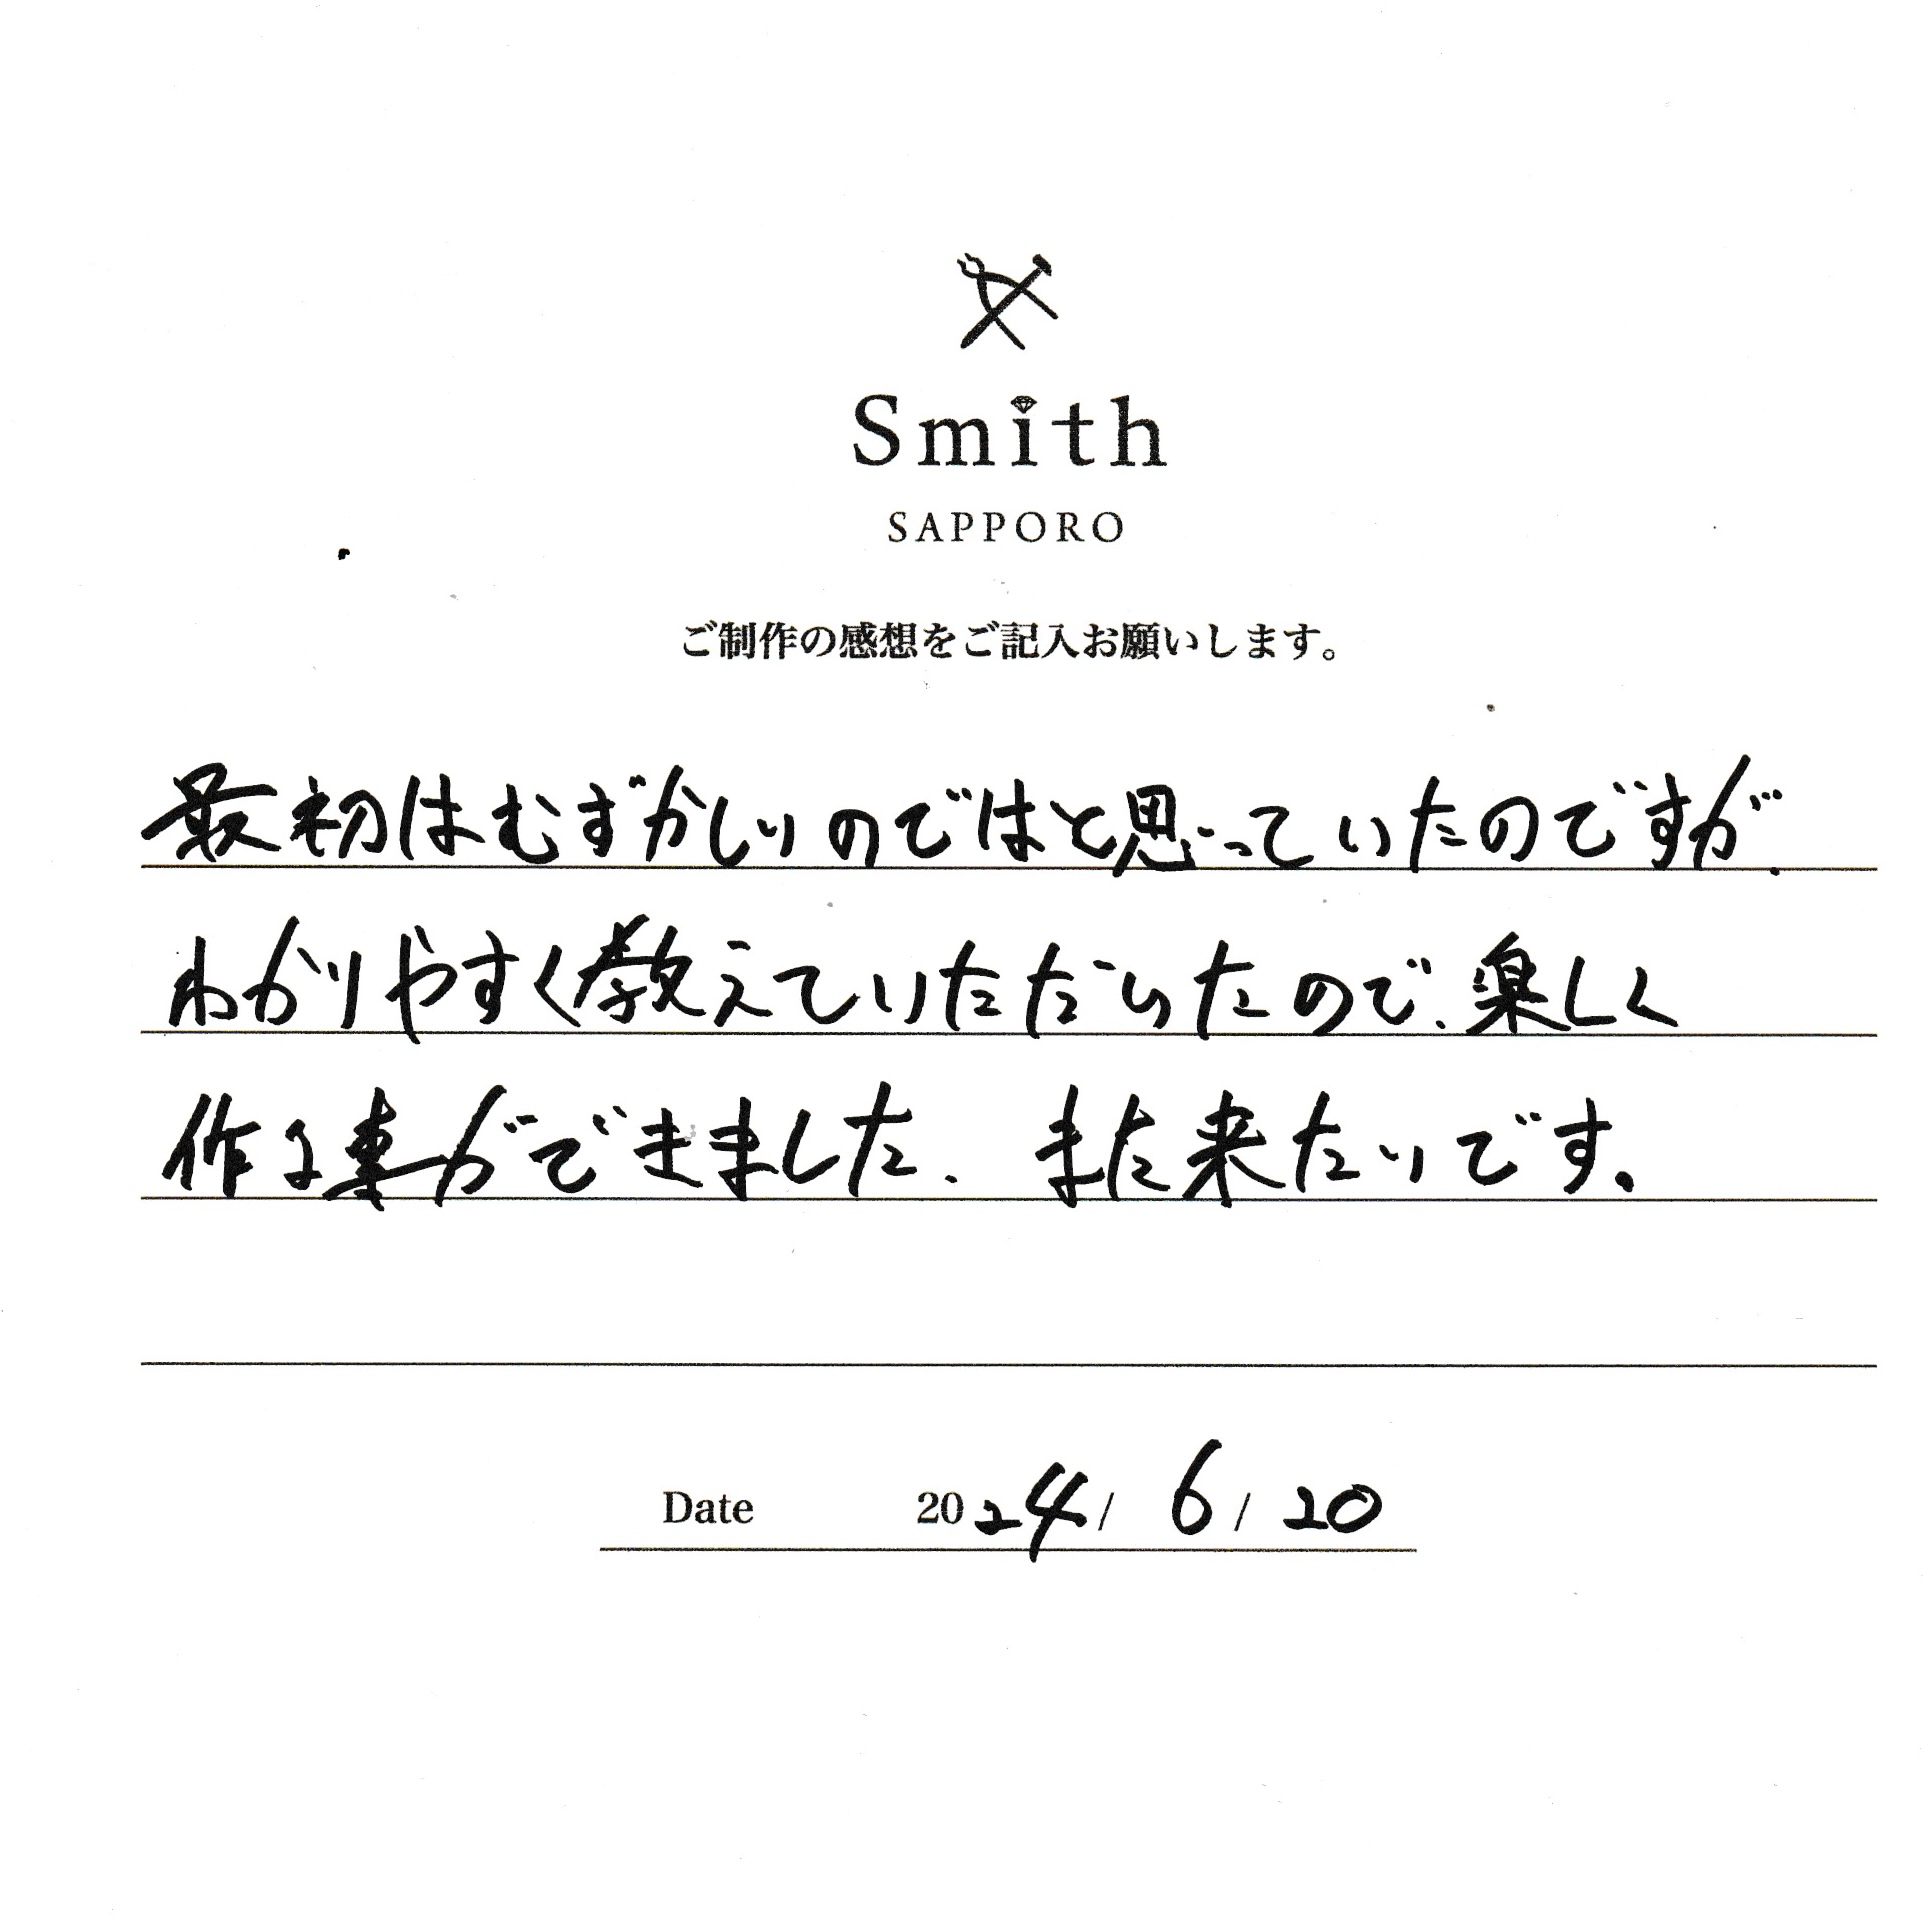 Smith
SAPPORO
ご制作の感想をご記入お願いします。
最初はむずかしいのではと思っていたのですが、
わかりやすく教えていただいたので、楽しく
作る事ができました。また来たいです。
Date 2024 / 6 / 20